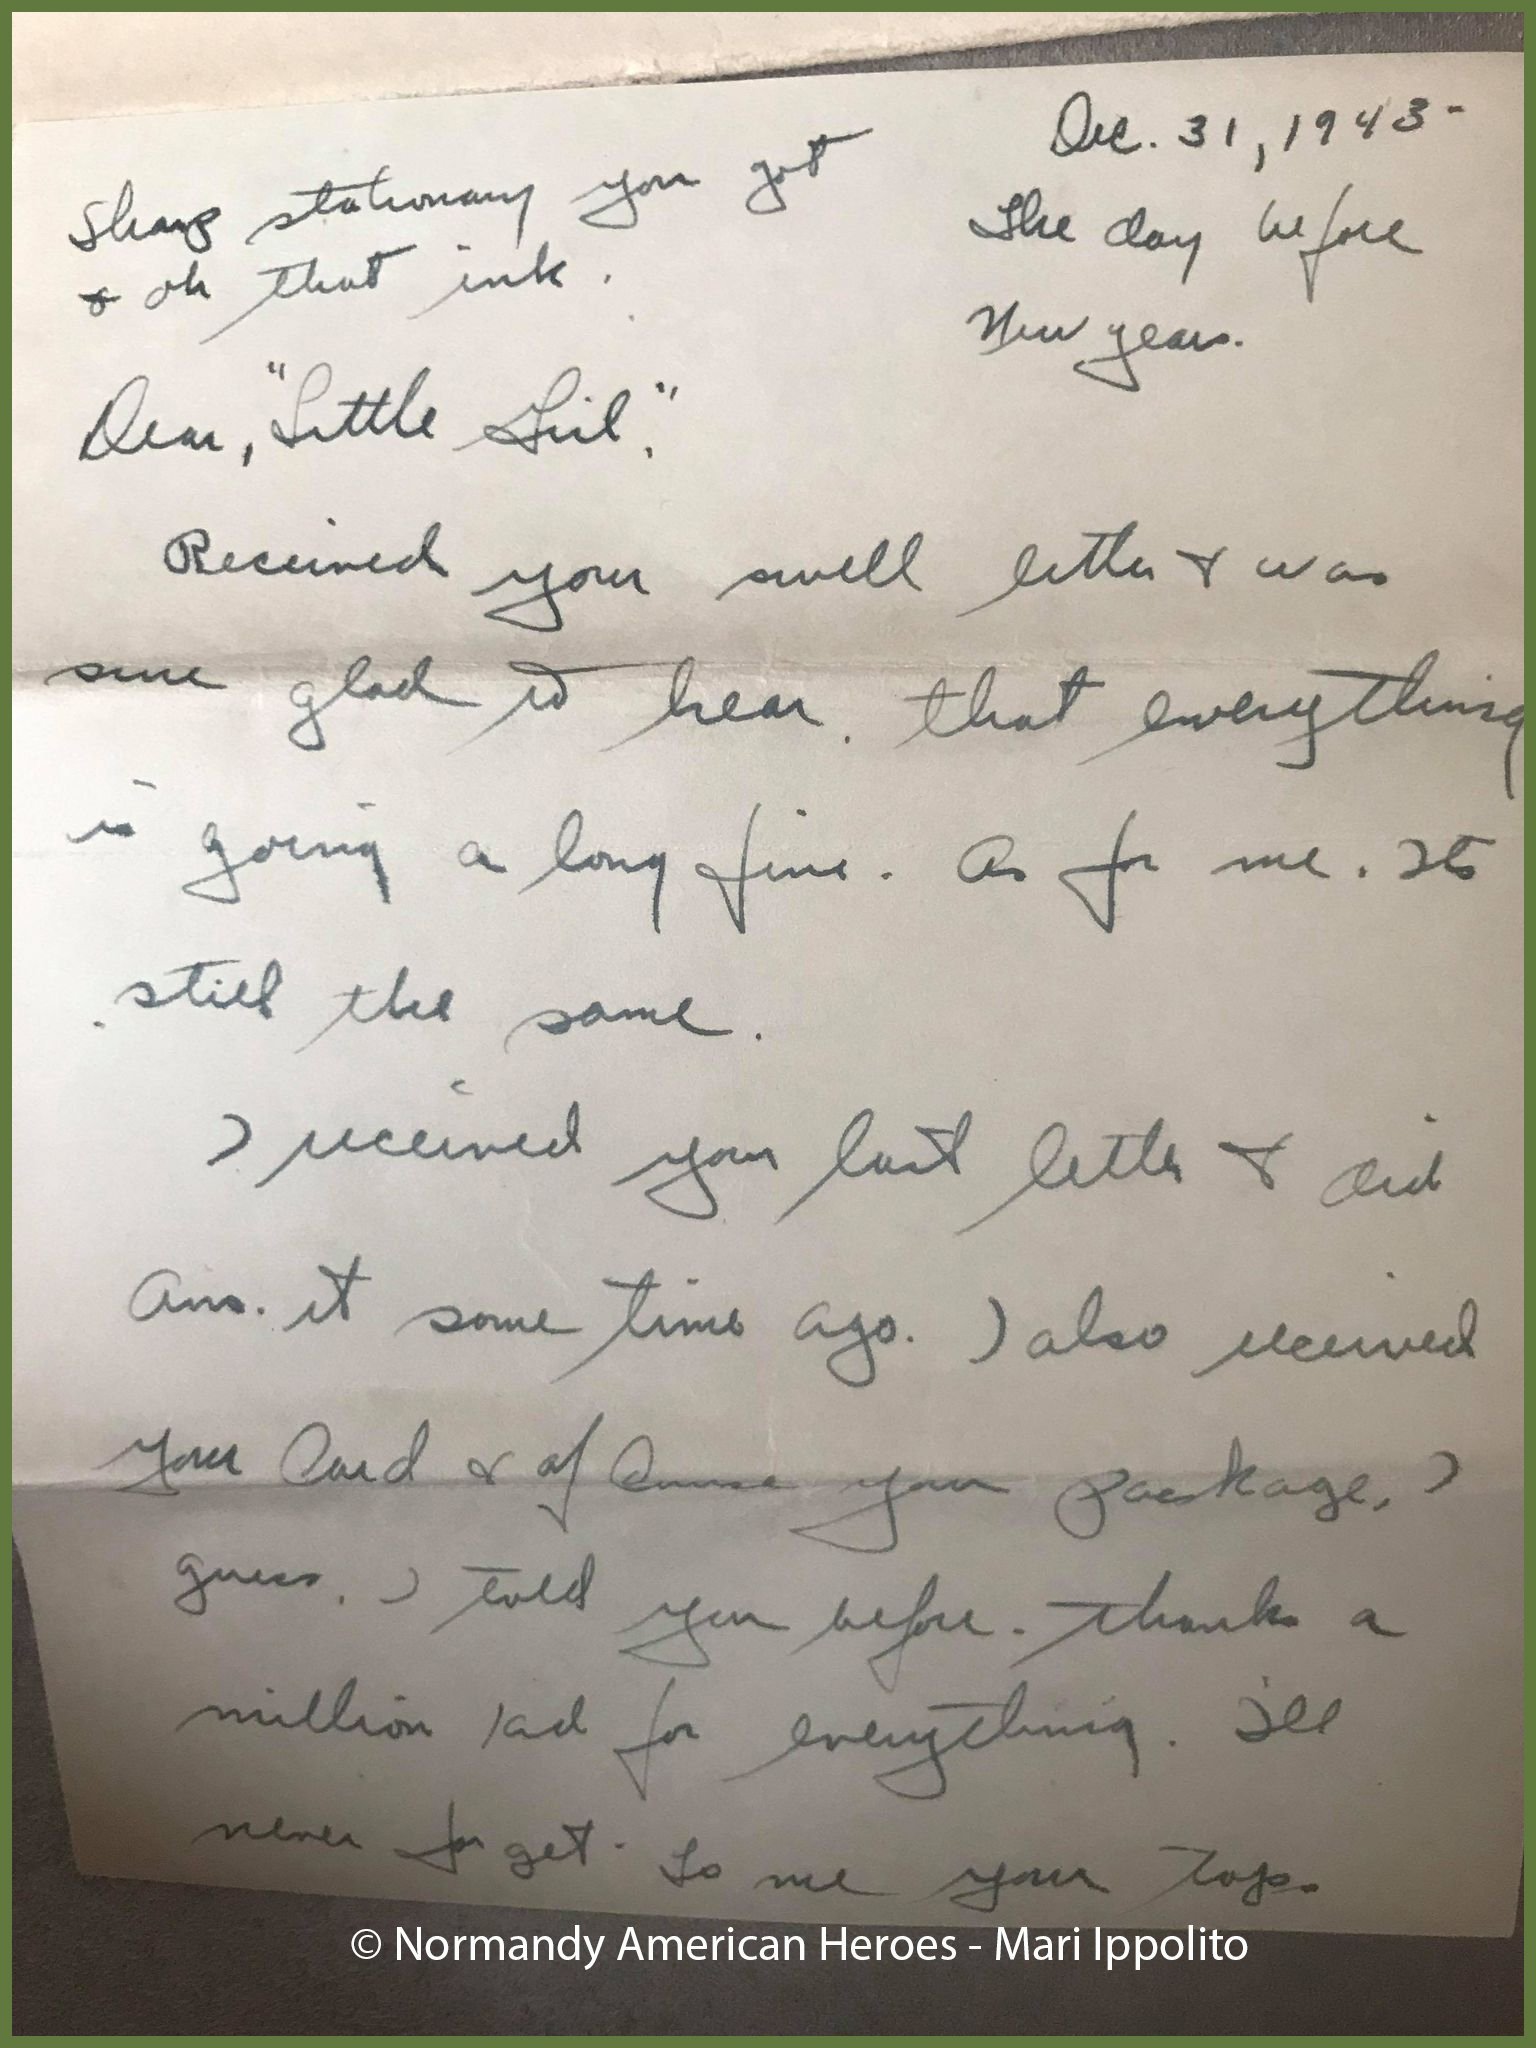 Dec. 31, 1943-
The day before
New years.
Sharp stationary you got
& oh that ink.
Dear, "Little Girl,"
Received your swell letter & was
sure glad to hear. that everything
is going a long fine. As for me. Its
still the same.
I received your last letter & did
Ans. it some time ago. I also received
your Card & of Course your package, I
guess. I told you before. thanks a
million kid for everything. I'll
never for get. To me your tops.
© Normandy American Heroes - Mari Ippolito